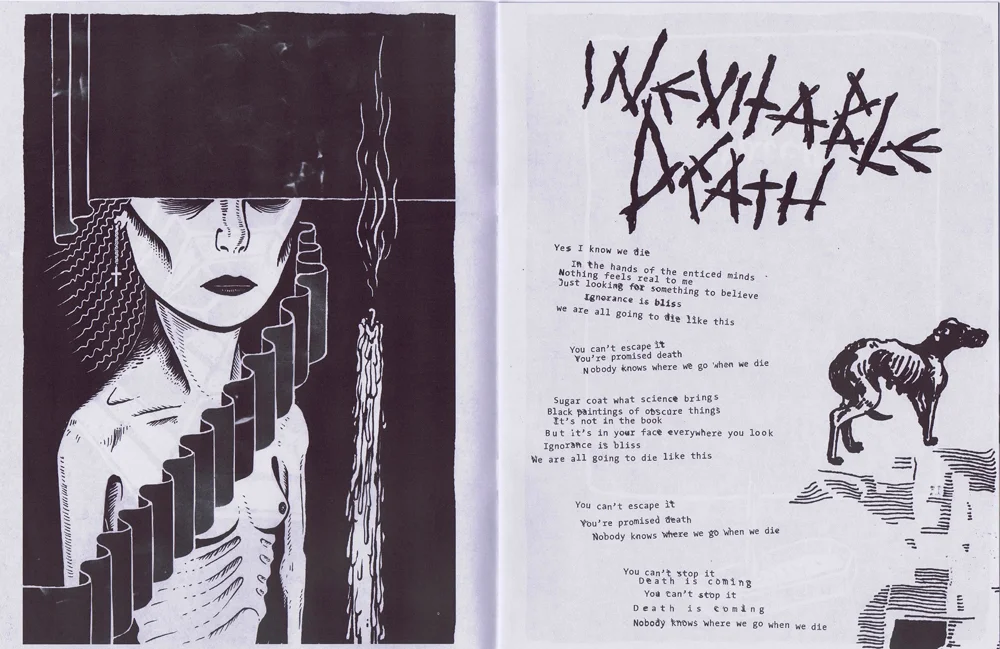 INEVITABLE
DEATH
Yes I know we die
In the hands of the enticed minds
Nothing feels real to me
Just looking for something to believe
Ignorance is bliss
we are all going to die like this
You can't escape it
You're promised death
Nobody knows where we go when we die
Sugar coat what science brings
Black paintings of obscure things
It's not in the book
But it's in your face everywhere you look
Ignorance is bliss
We are all going to die like this
You can't escape it
You're promised death
Nobody knows where we go when we die
You can't stop it
Death is coming
You can't stop it
Death is coming
Nobody knows where we go when we die